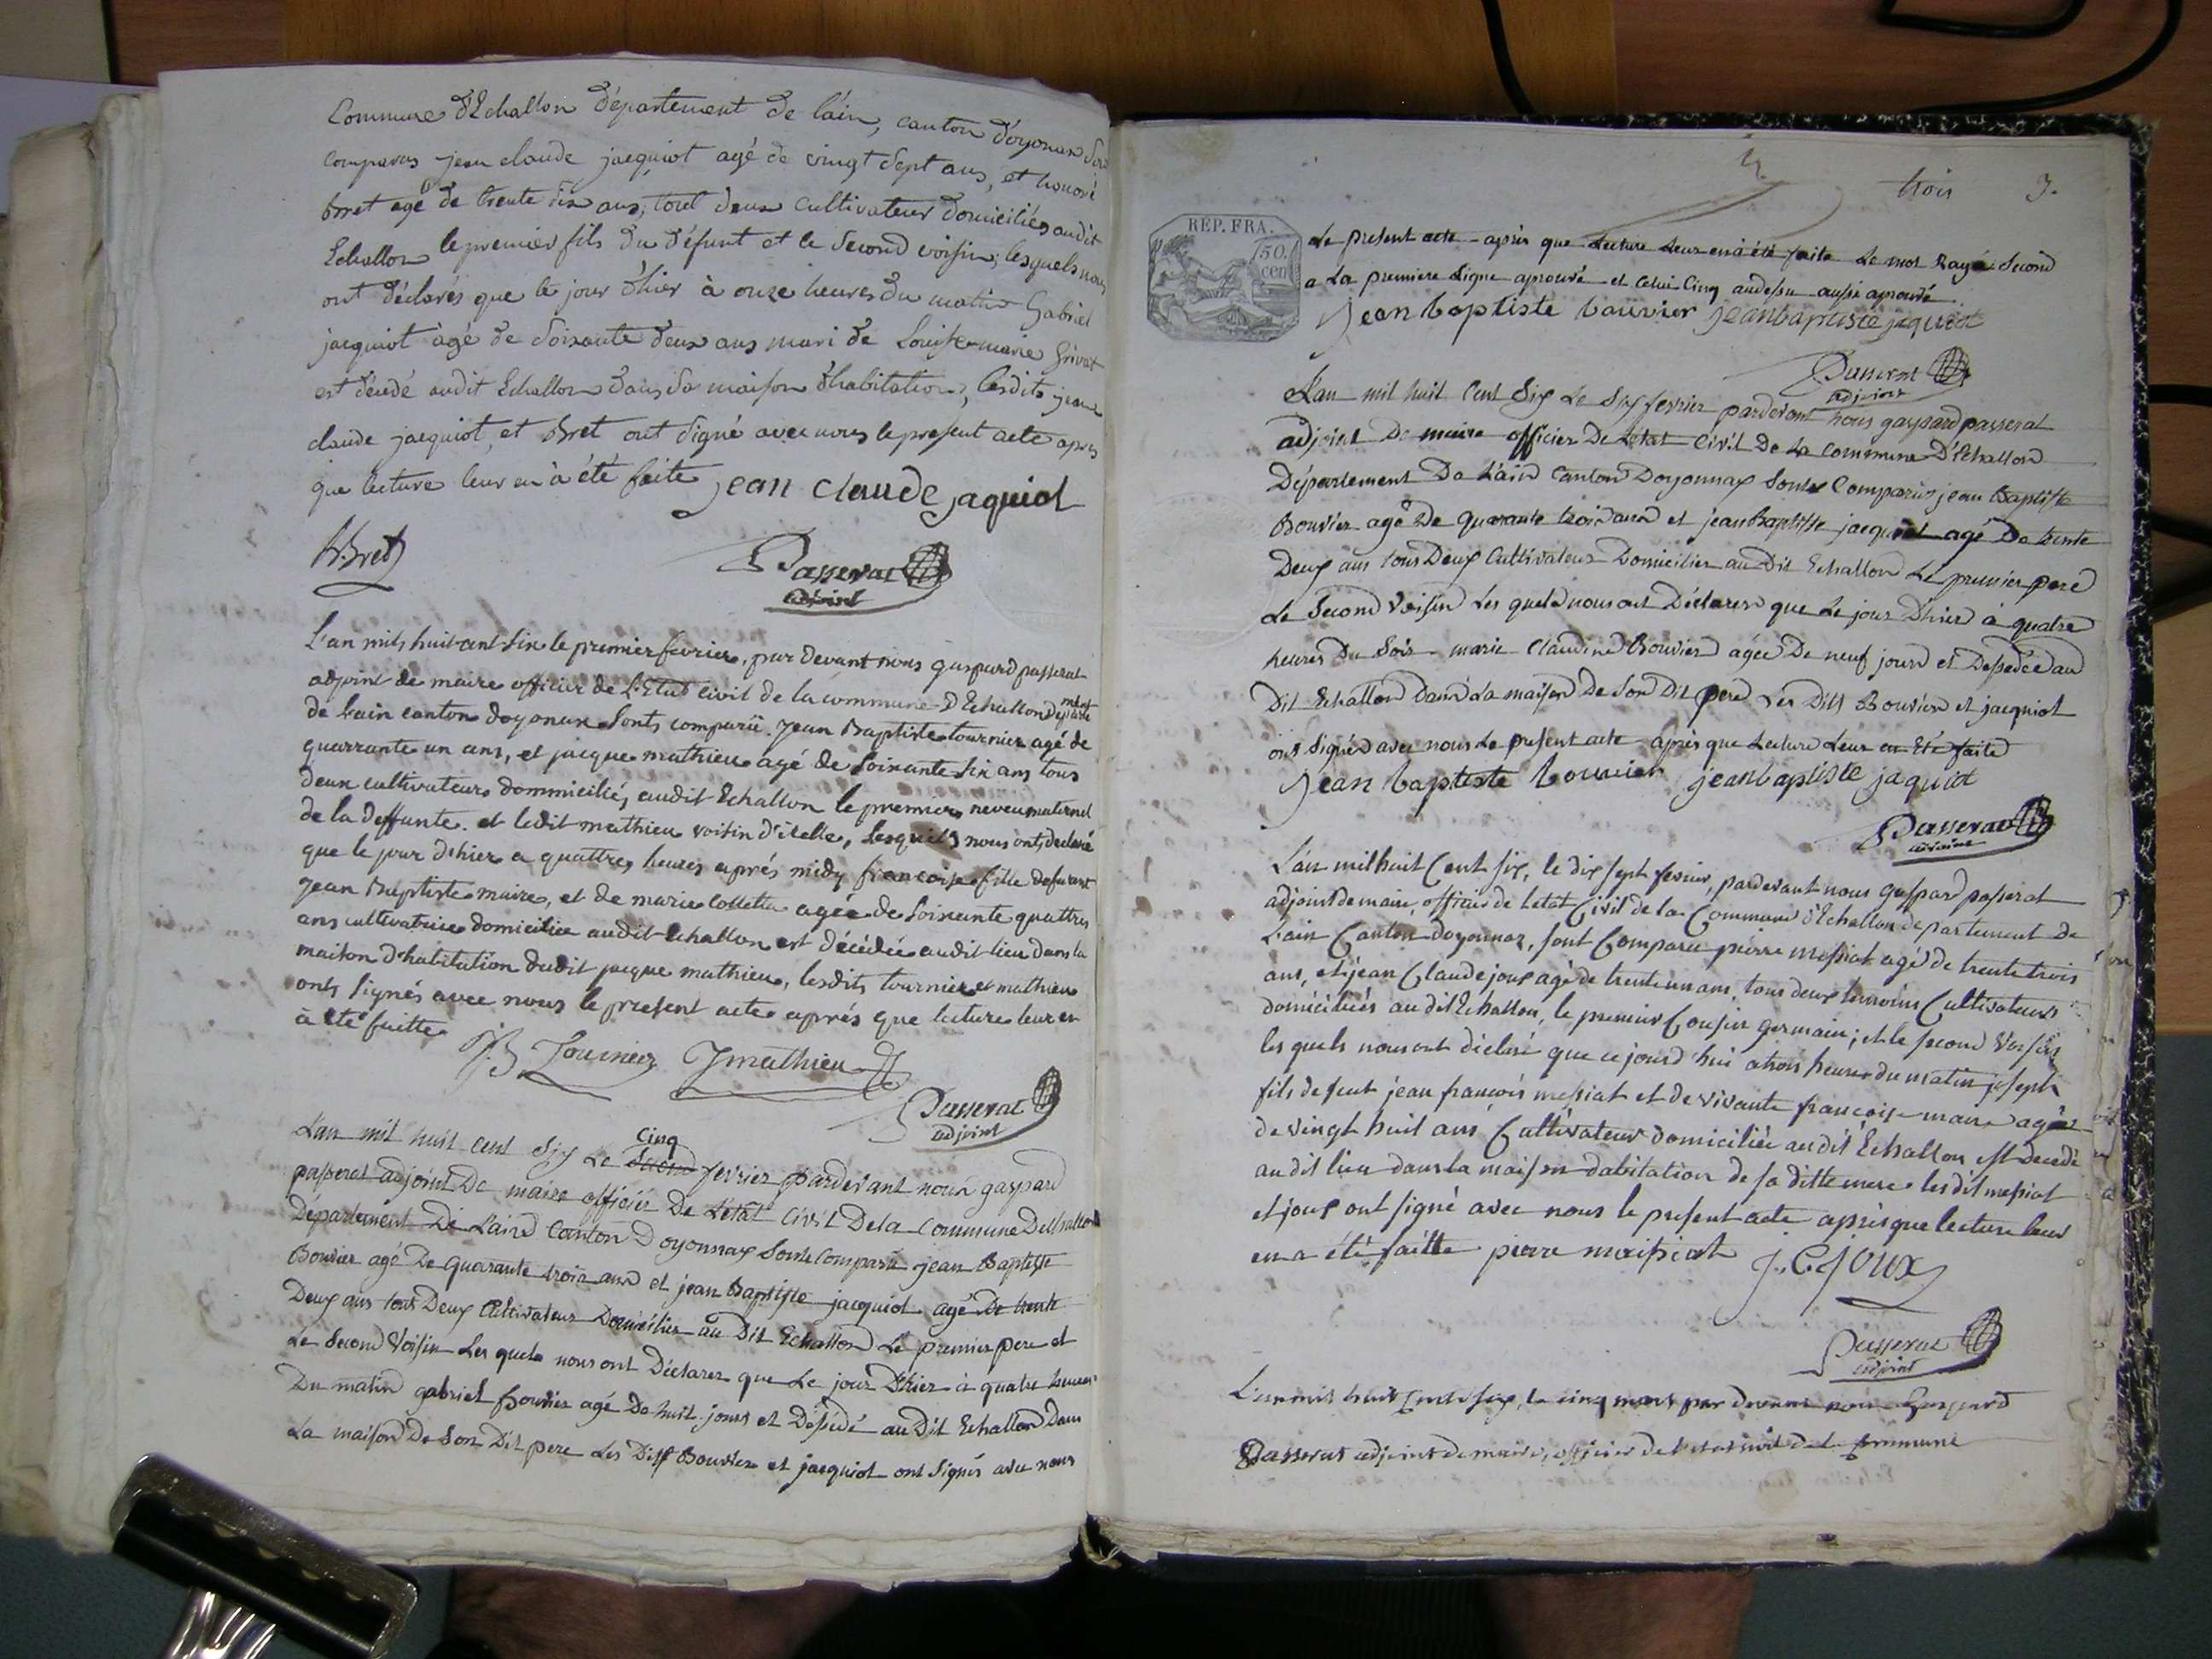 Commune d'Echallon département de l'ain, canton d'oyonax Son
comparus jean claude jacquiot agé de vingt sept ans, et honoré
Bret agé de trente six ans, tout deux cultivateur domiciliés audit
Echallon le premier fils du défunt et le Second voisin; lesquels nous
ont déclarés que le jour d'hier à onze heures du matin Gabriel
jacquiot agé de Soixante deux ans mari de Louise marie Grivat
est décédé audit Echallon dans Sa maison d'habitation, lesdits jean
claude jacquiot, et Bret ont Signé avec nous le present acte apres
que lecture leur en à été faite jean claude jaquiot
h. Bret
Passerat
adjoint
L'an mils huit cent Six le premier fevrier, par devant nous gaspard passerat
adjoint de maire officier de L'Etat civil de la commune D'Echallon département
de Lain canton doyonax Sont comparu jean Baptiste tournier agé de
quarrante un ans, et jacque mathieu agé de Soixante Six ans tous
deux cultivateurs dommicilié, audit Echallon le premier neveu maternel
de la deffunte. et ledit mathieu voisin d'icelle, lesquels nous ont declaré
que le jour dhier a quattre heures aprés midy francoise fille defunt
jean Baptiste maire, et de marie Colletta agée de Soixante quattres
ans cultivatrice domiciliée audit Echallon est décédée audit lieu dans la
maison d'habitation dudit jacque mathieu, lesdits tournier et mathieu
onts signés avec nous le present acte aprés que lecture leur en
à été faitte
JB Tournier J mathieu
Passerat
adjoint
L'an mil huit cent Six Le Second Cinq fevrier pardevant nous gaspard
passerat adjoint De maire officier De L'état Civil De la Commune Dechallon
Département De L'aind Canton Doyonnax Sont Comparu jean Baptiste
Bouvier agé De quarante trois ans et jean Baptiste jacquiot agé De trente
Deux ans tous Deux Cultivateurs Domicilier au Dit Echallon Le premier pere et
Le Second Voisin Les quels nous ont Déclarer que Le jour D'hier à quatre heures
Du matin gabriel Bouvier agé De huit jours et Déssédé au Dit Echallon Dans
La maison De Son Dit pere Les Dits Bouvier et jacquiot ont Signés avec nous
trois 3.
REP. FRA.
50 cent
Le present acte après que Lecture Leur en à été faite Le mot Rayé Second
a La premiere Ligne aprouvé et Celui Cinq audessu aussi aprouvé
jean baptiste bouvier jean baptiste jaquiot
Passerat
adjoint
L'an mil huit Cent Six Le Six fevrier pardevant nous gaspard passerat
adjoint De maire officier De L'état Civil De La Commune D'Echallon
Département De L'ain Canton Doyonnax Sont Comparus jean Baptiste
Bouvier agé De quarante trois ans et jean Baptiste jacquiot agé De trente
Deux ans tous Deux Cultivateur Domicilier au Dit Echallon Le premier pere
Le Second Voisin Les quels nous ont Déclarer que Le jour D'hier à quatre
heures Du Soir marie Claudine Bouvier agée De neuf jours et Dessédée au
Dit Echallon Dans La maison De Son Dit pere Les Dits Bouvier et jacquiot
ont Signés avec nous Le present acte après que Lecture Leur en Eté faite
jean baptiste bouvier jean baptiste jaquiot
Passerat
adjoint
L'an mil huit Cent six, le dix sept fevrier, pardevant nous gaspard passerat
adjoint de maire, officier de letat Civil de la Commune d'Echallon departement de
L'ain Canton doyonnax, sont Comparu pierre messiat agé de trente trois
ans, et jean Claude joux agé de trente un ans, tous deux temoins Cultivateurs
domiciliés au dit Echallon, le premier Cousin germain; et le second Voisin
les quels nous ont déclaré que ce jourd'hui a trois heures du matin joseph
fils defeut jean francois messiat et de vivante francoise maire agée
de vingt huit ans Cultivateur domiciliée au dit Echallon est decedé
au dit lieu dans la maison dabitation de sa ditte mere les dit messiat
et joux ont signé avec nous le present acte après que lecture leur
en a été faitte pierre messiat J. C. JOUX
Passerat
adjoint
L'an mil huit Cent Six, le cinq mars par devant nous Gaspard
Passerat adjoint de maire, officier de l'etat civil de la Commune